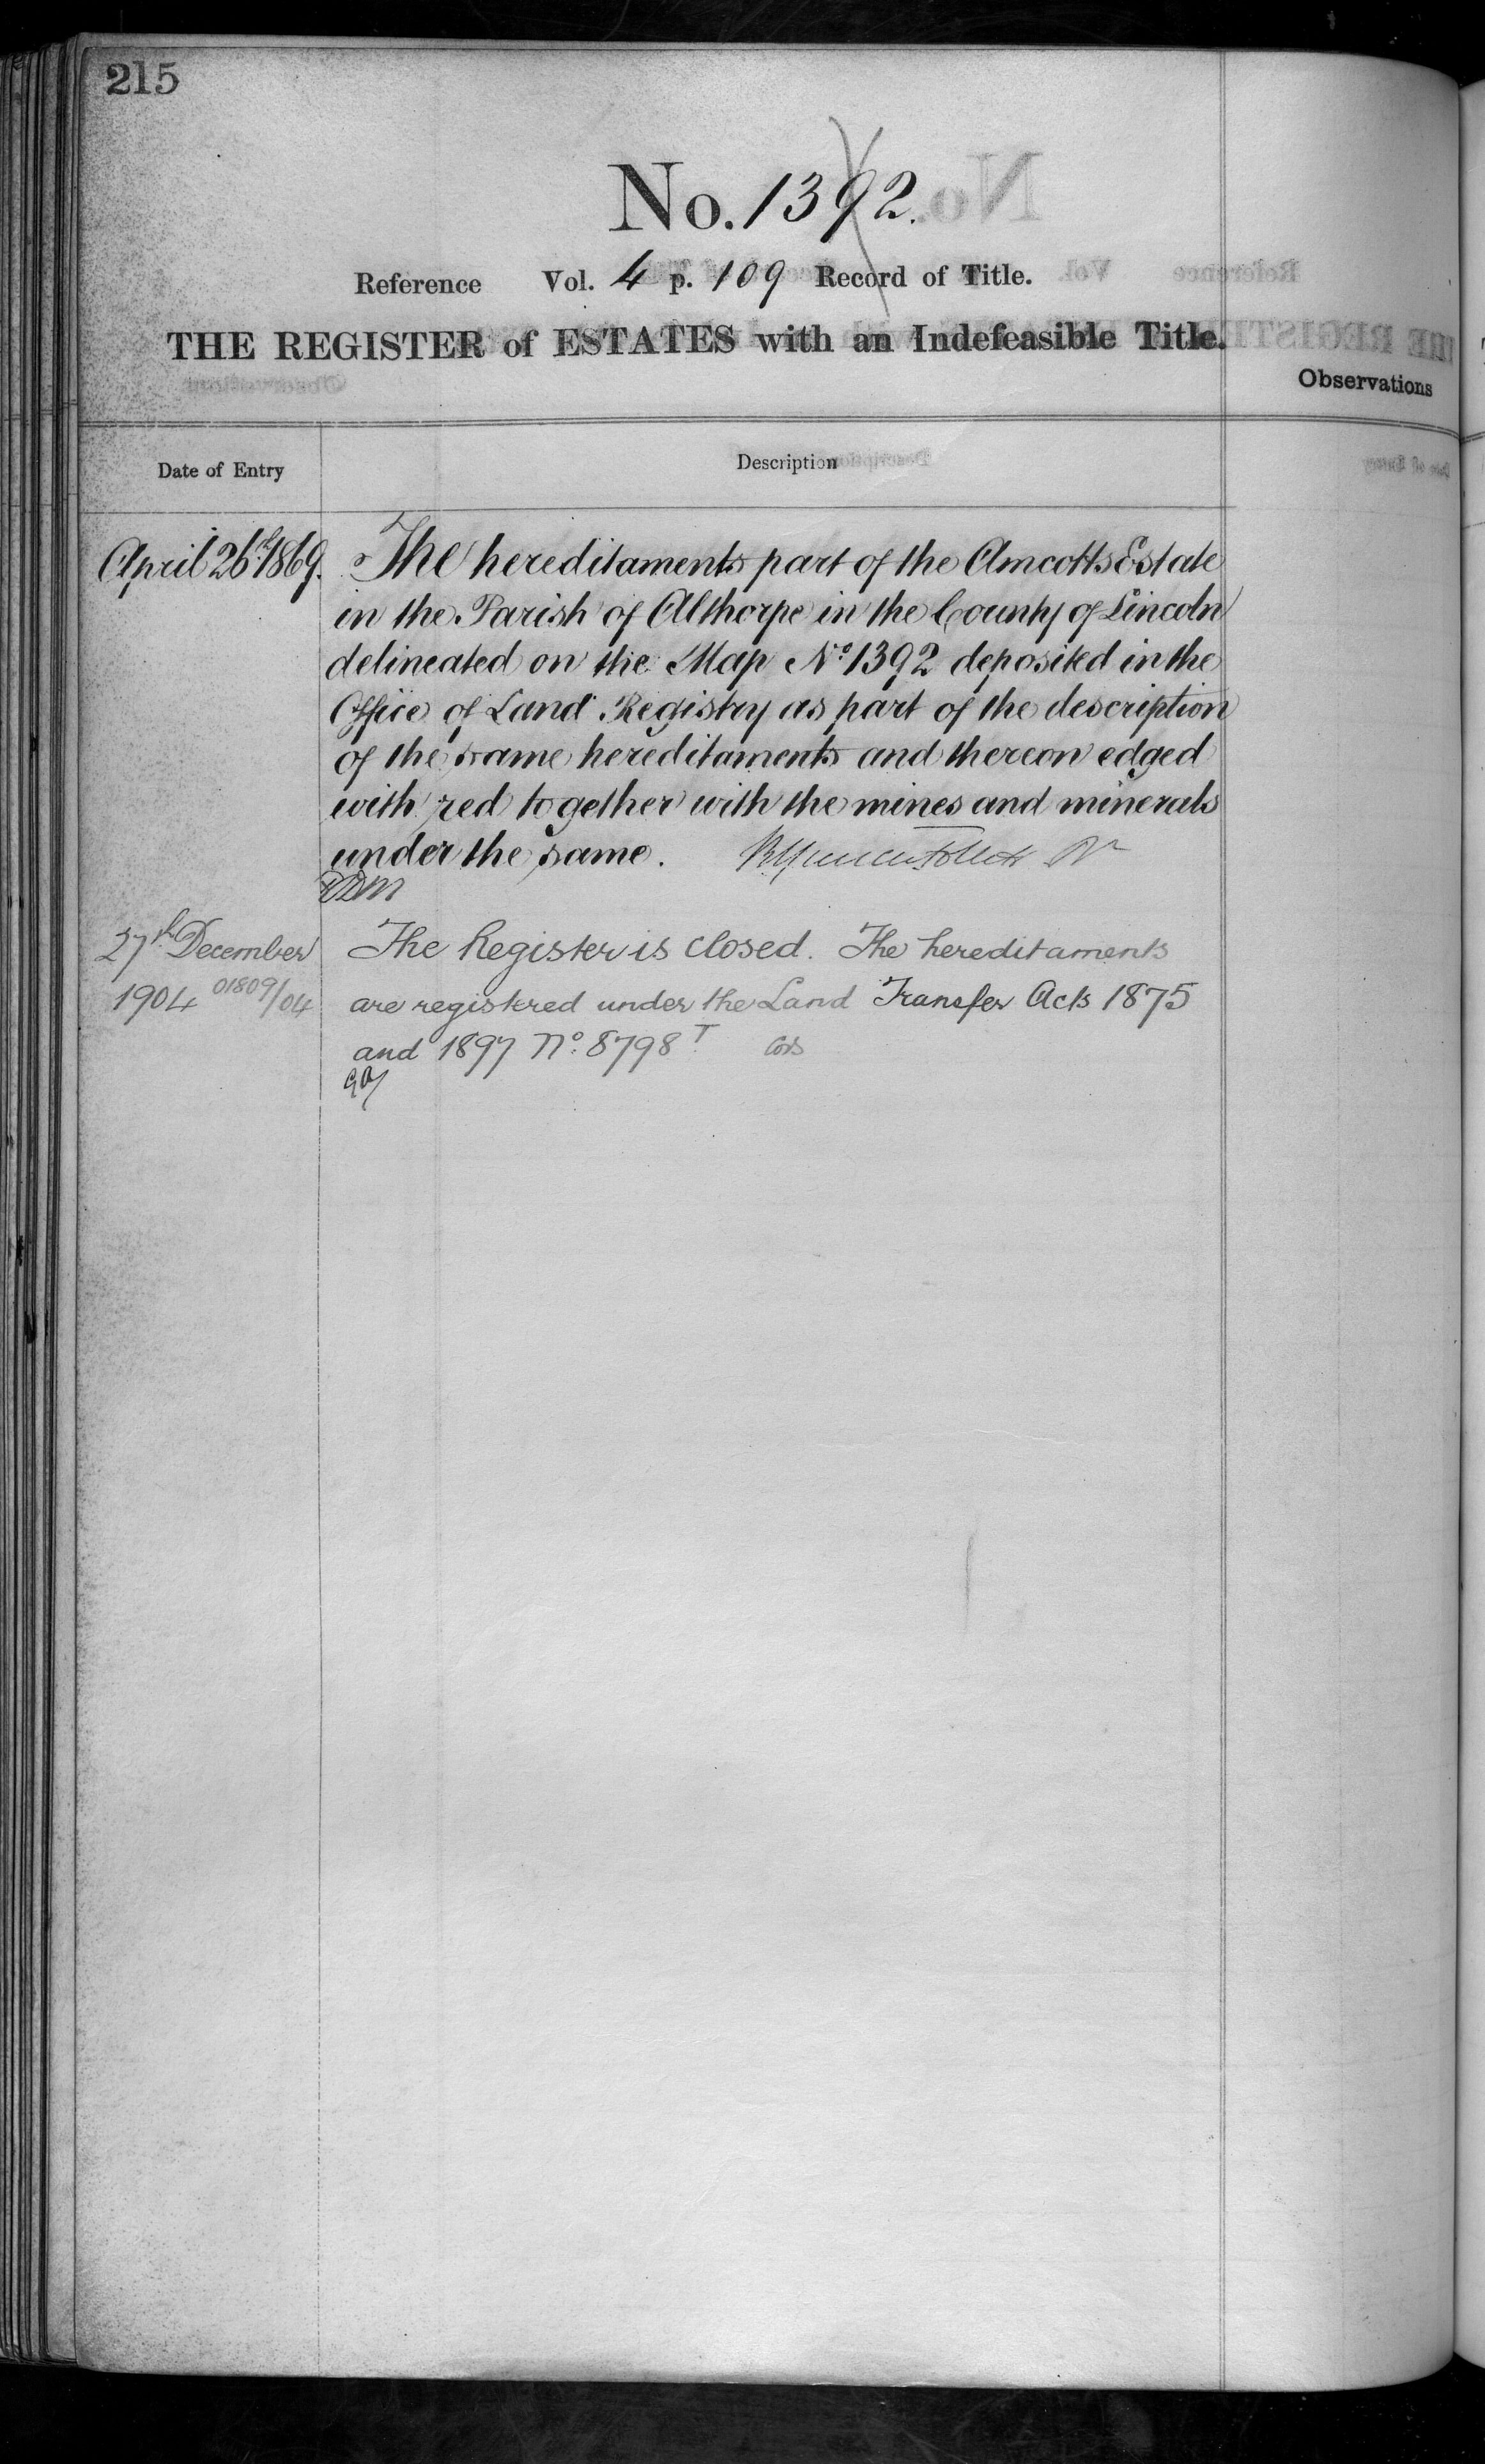 215
No. 1392.
Reference Vol. 4 p. 109 Record of Title.
THE REGISTER of ESTATES with an Indefeasible Title.
Observations
Date of Entry
Description
April 26th 1869.
The hereditaments part of the Amcotts Estate
in the Parish of Althorpe in the County of Lincoln
delineated on the Map No 1392 deposited in the
Office of Land Registry as part of the description
of the same hereditaments and thereon edged
with red together with the mines and minerals
under the same.
27th December
1904 01809/04
The Register is closed. The hereditaments
are registered under the Land Transfer Acts 1875
and 1897 No. 8798 T